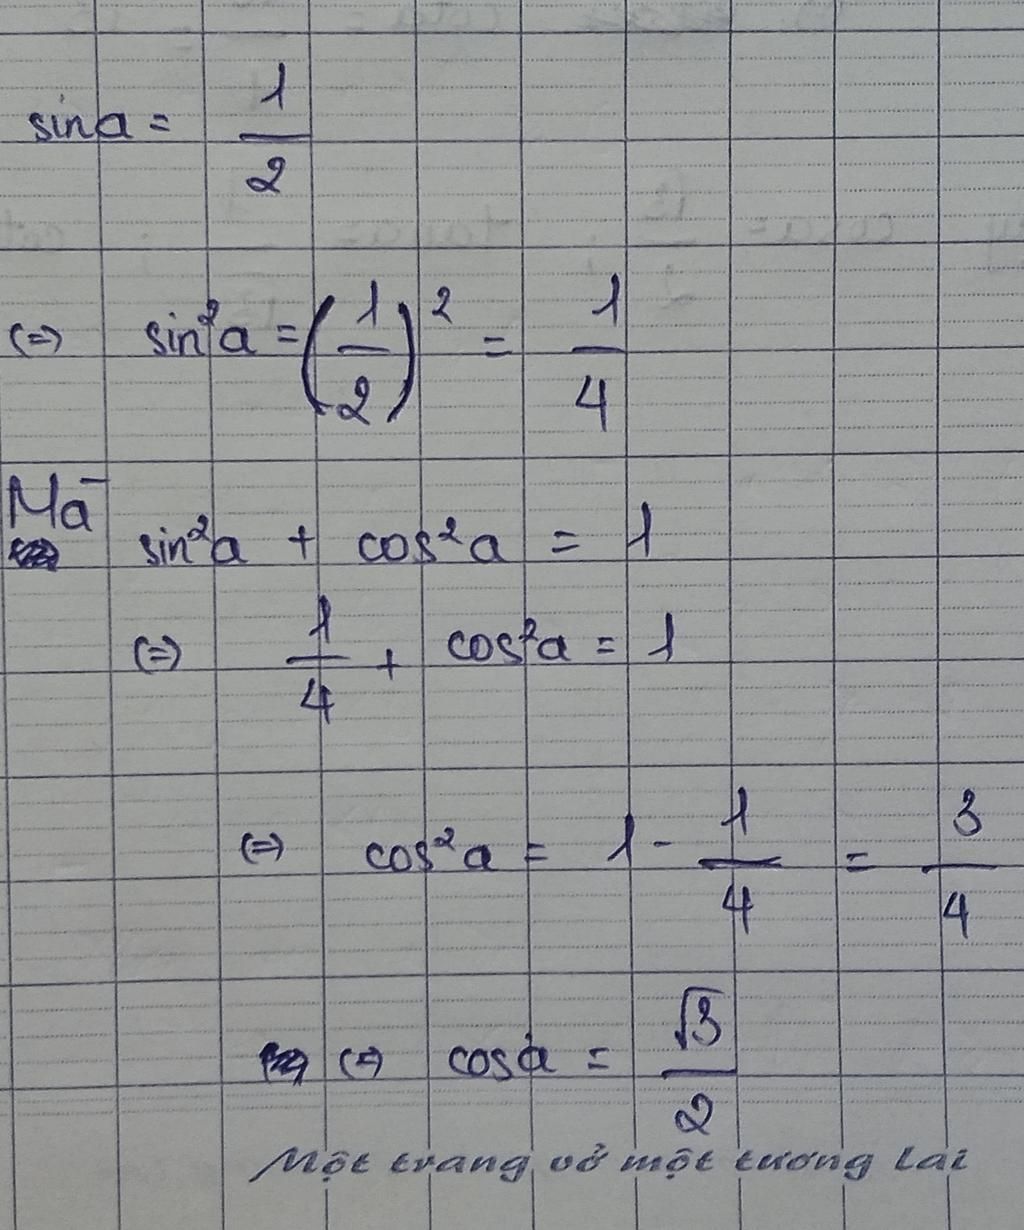 sin a = 1/2
(=) sin²a = (1/2)² = 1/4
Mà sin²a + cos²a = 1
(=) 1/4 + cos²a = 1
(=) cos²a = 1 - 1/4 = 3/4
(=) cos a = √3/2
Một trang vở một tương lai